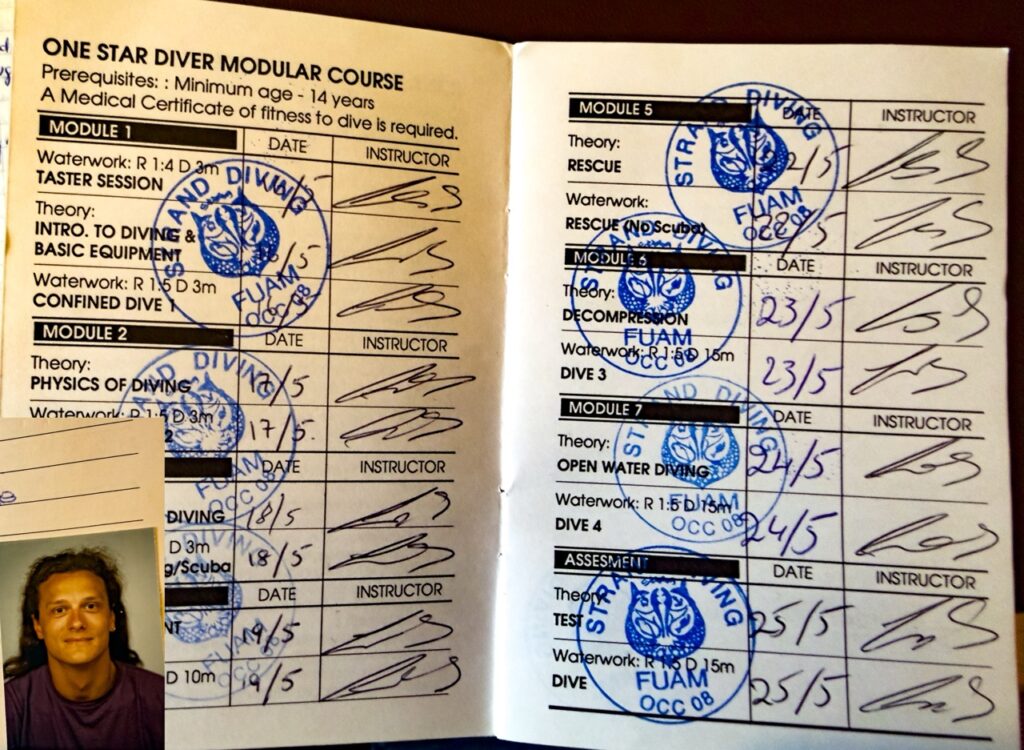 ONE STAR DIVER MODULAR COURSE
Prerequisites: : Minimum age - 14 years
A Medical Certificate of fitness to dive is required.
MODULE 1 DATE INSTRUCTOR
Waterwork: R 1:4 D 3m
TASTER SESSION /5
Theory:
INTRO. TO DIVING &
BASIC EQUIPMENT /5
Waterwork: R 1:5 D 3m
CONFINED DIVE 1
STRAND DIVING
FUAM
OCC 08
MODULE 2 DATE INSTRUCTOR
Theory:
PHYSICS OF DIVING 17/5
Waterwork: R 1:5 D 3m
2 17/5.
AND DIVING
FUAM
OCC 08
DATE INSTRUCTOR
DIVING 18/5
D 3m
g/Scuba 18/5
DATE INSTRUCTOR
NT 19/5
D 10m 19/5
DIVING
FUAM
OCC 08
MODULE 5 DATE INSTRUCTOR
Theory:
RESCUE 22/5
Waterwork:
RESCUE (No Scuba) 22/5
STRAND DIVING
FUAM
OCC 08
MODULE 6 DATE INSTRUCTOR
Theory:
DECOMPRESSION 23/5
Waterwork: R 1:5 D 15m
DIVE 3 23/5
STRAND DIVING
FUAM
OCC 08
MODULE 7 DATE INSTRUCTOR
Theory:
OPEN WATER DIVING 24/5
Waterwork: R 1:5 D 15m
DIVE 4 24/5
STRAND DIVING
FUAM
OCC 08
ASSESMENT DATE INSTRUCTOR
Theory
TEST 25/5
Waterwork: R 1:5 D 15m
DIVE 25/5
STRAND DIVING
FUAM
OCC 08